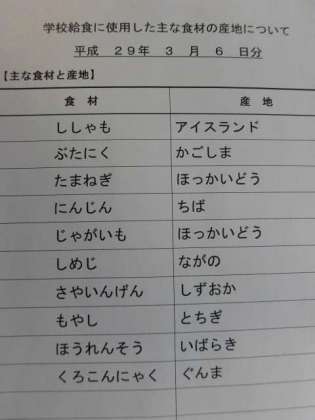 学校給食に使用した主な食材の産地について
平成 29年 3 月 6 日分
【主な食材と産地】
食 材 産 地
ししゃも アイスランド
ぶたにく かごしま
たまねぎ ほっかいどう
にんじん ちば
じゃがいも ほっかいどう
しめじ ながの
さやいんげん しずおか
もやし とちぎ
ほうれんそう いばらき
くろこんにゃく ぐんま